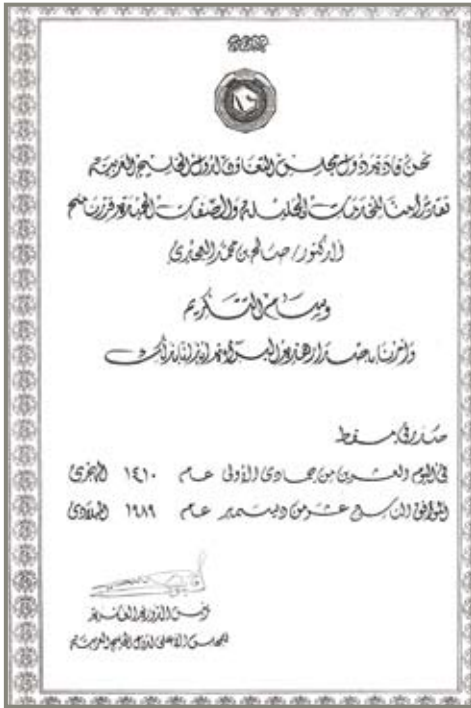 نحن قادة دول مجلس التعاون لدول الخليج العربية
تقديراً منا للخدمات الجليلة والصفات الحميدة قررنا منح
الدكتور / صالح بن محمد العجيري
وسام التكريم
وأمرنا بإصدار هذه البراءة إيذاناً بذلك
صدر في مسقط
في اليوم العشرين من جمادى الأولى عام ١٤١٠ الهجري
الموافق التاسع عشر من ديسمبر عام ١٩٨٩ الميلادي
رئيس الدورة العاشرة
للمجلس الأعلى لدول الخليج العربية